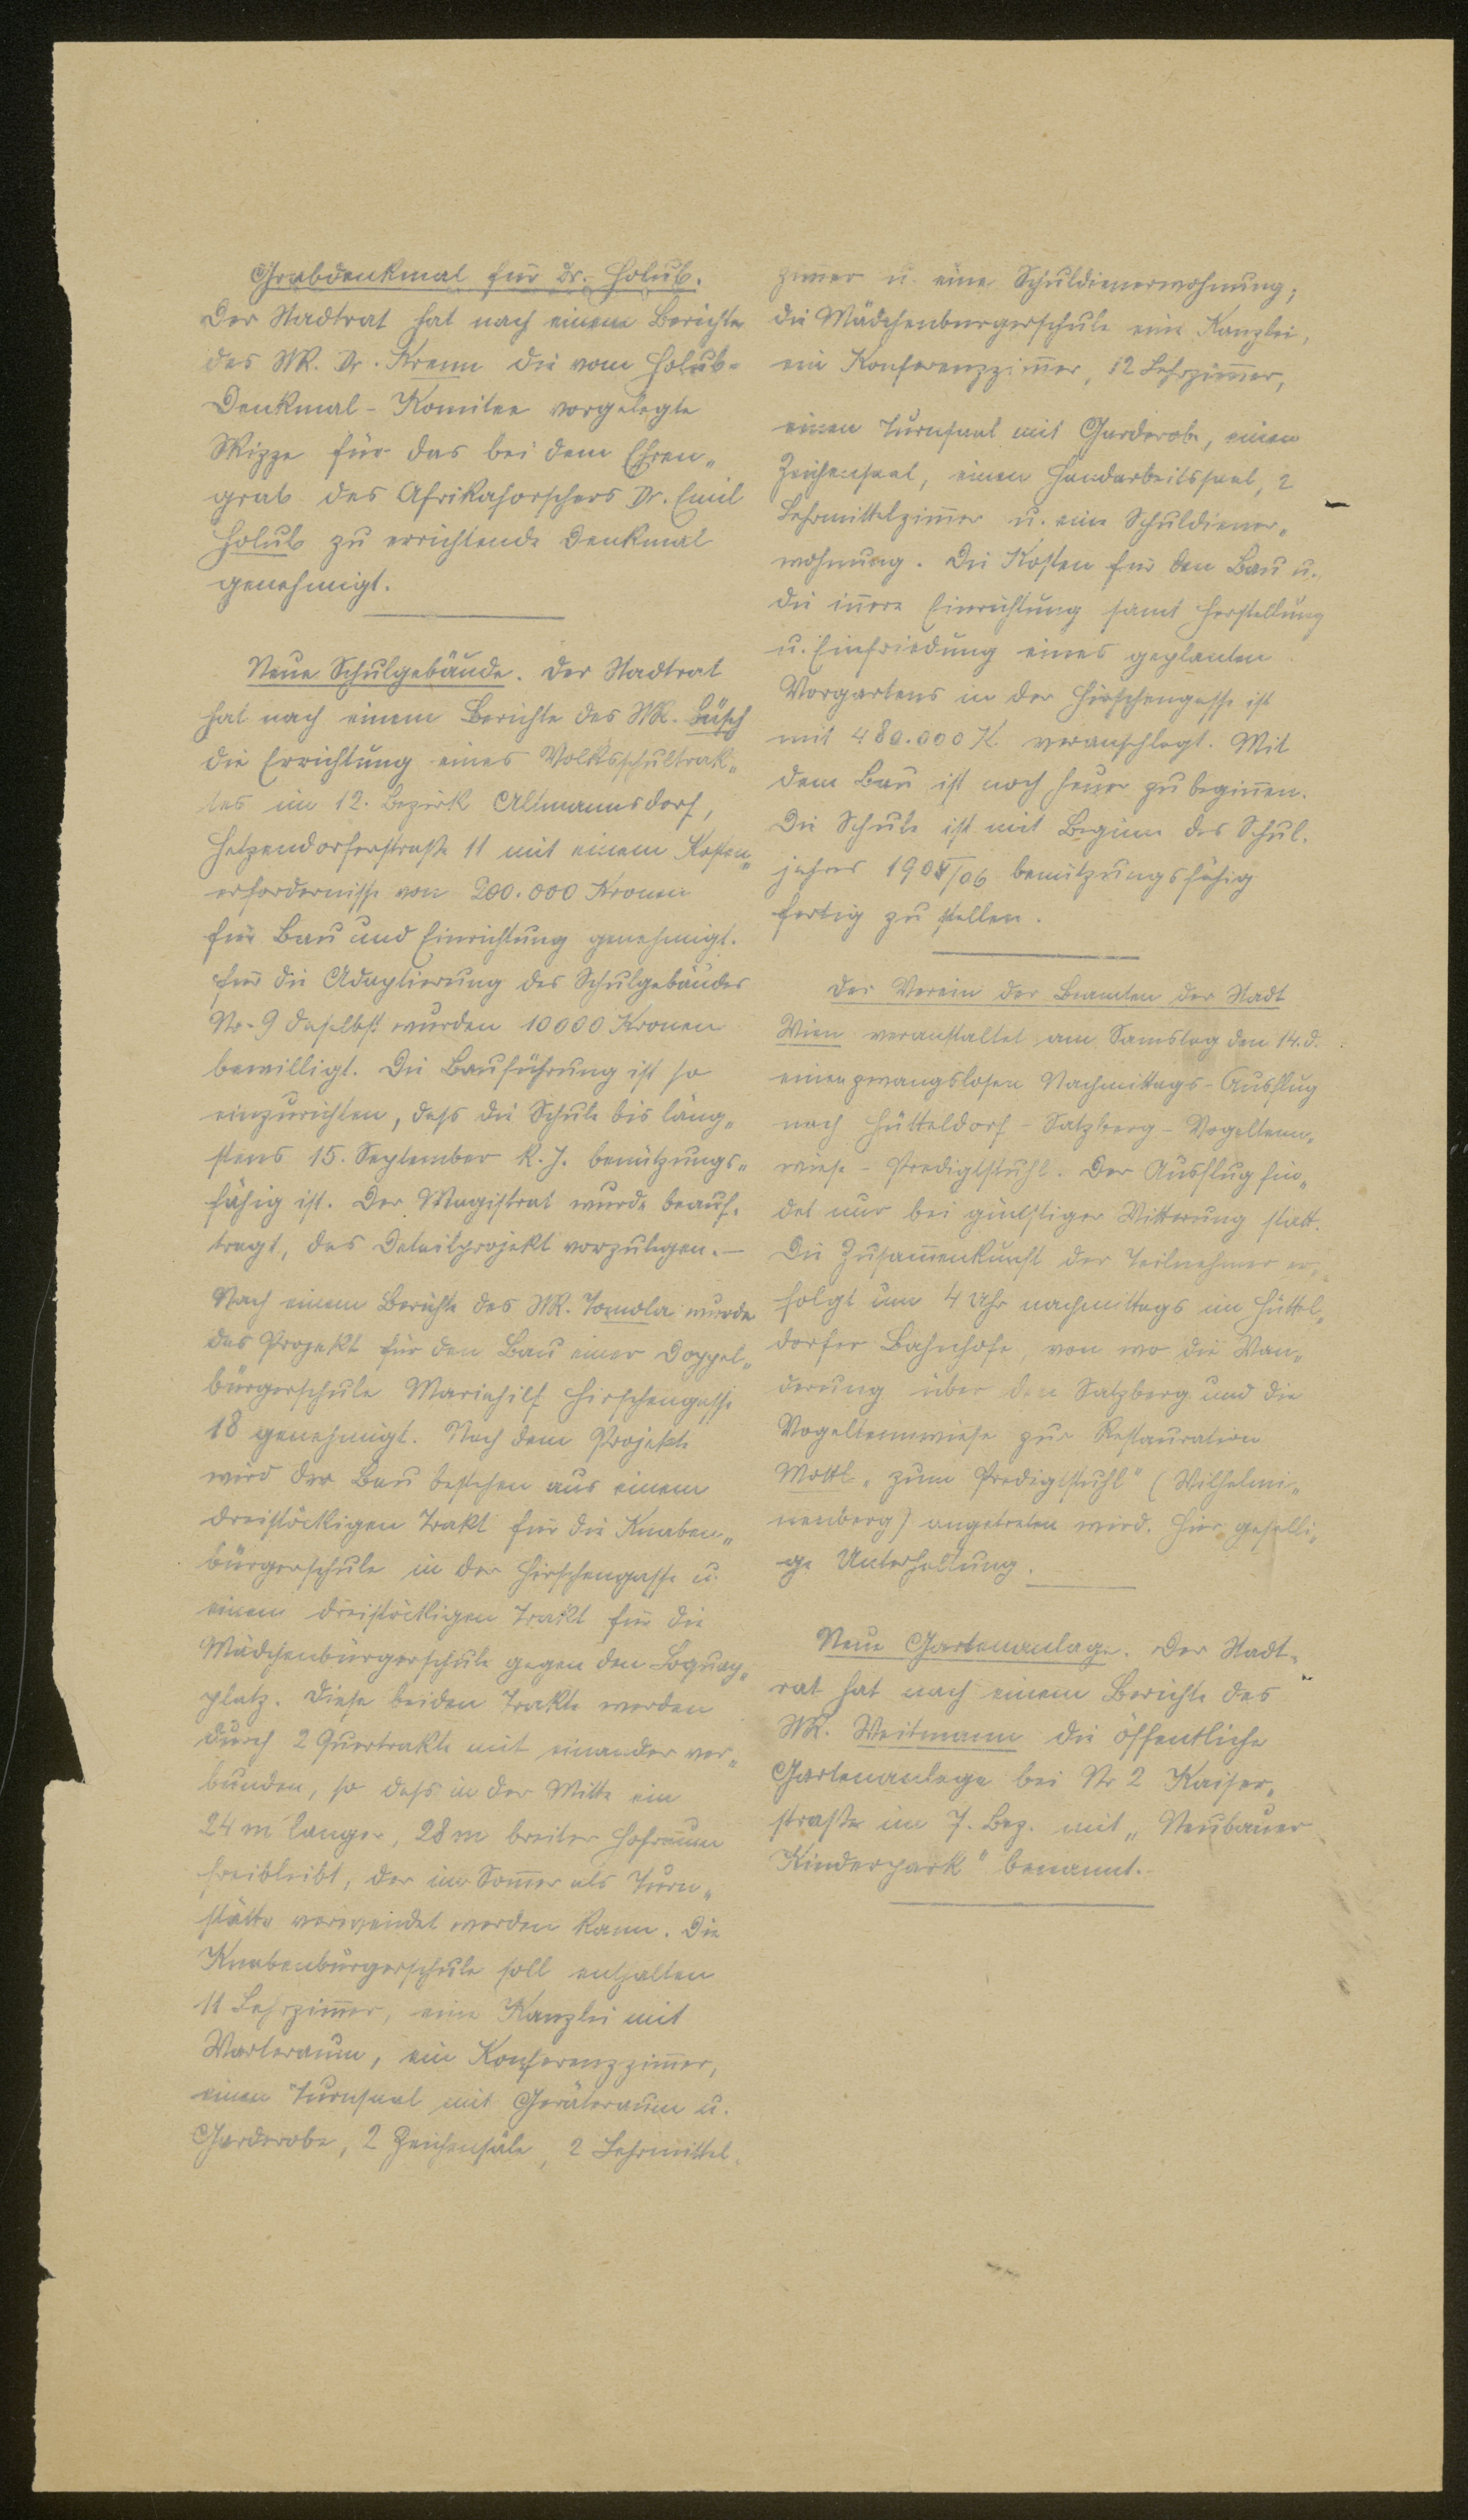 Grabdenkmal für Dr. Holub.
Der Stadtrat hat nach einem Berichte
des StR. Dr. Krenn die vom Holub-
Denkmal-Komitee vorgelegte
Skizze für das bei dem Ehren„
grab des Afrikaforschers Dr. Emil
Holub zu errichtende Denkmal
genehmigt.
Neue Schulgebäude. Der Stadtrat
hat nach einem Berichte des StR. Büsch
die Errichtung eines Volksschultrak„
tes im 12. Bezirk Altmannsdorf,
Hetzendorferstraße 11 mit einem Kosten„
erfordernisse von 200.000 Kronen
für Bau und Einrichtung genehmigt.
Für die Adaptierung des Schulgebäudes
Nr. 9 daselbst wurden 10000 Kronen
bewilligt. Die Bauführung ist so
einzurichten, daß die Schule bis läng„
stens 15. September k. J. benützungs„
fähig ist. Der Magistrat wurde beauf„
tragt, das Detailprojekt vorzulegen. —
Nach einem Berichte des StR. Tomola wurde
das Projekt für den Bau einer Doppel„
bürgerschule Mariahilf Hirschengasse
18 genehmigt. Nach dem Projekte
wird der Bau bestehen aus einem
dreistöckigen Trakt für die Knaben„
bürgerschule in der Hirschengasse u.
einem dreistöckigen Trakt für die
Mädchenbürgerschule gegen den Loquay„
platz. Diese beiden Trakte werden
durch 2 Quertrakte mit einander ver„
bunden, so daß in der Mitte ein
24 m langer, 28 m breiter Hofraum
freibleibt, der im Som̄er als Turn„
stätte verwendet werden kann. Die
Knabenbürgerschule soll enthalten
11 Lehrzim̄er, eine Kanzlei mit
Warteraum, ein Konferenzzim̄er,
einen Turnsaal mit Geräteraum u.
Garderobe, 2 Zeichensäle, 2 Lehrmittel„
zim̄er u. eine Schuldienerwohnung;
die Mädchenbürgerschule eine Kanzlei,
ein Konferenzzim̄er, 12 Lehrzim̄er,
einen Turnsaal mit Garderobe, einen
Zeichensaal, einen Handarbeitssaal, 2
Lehrmittelzim̄er u. eine Schuldiener„
wohnung. Die Kosten für den Bau u.
die in̄ere Einrichtung samt Herstellung
u. Einfriedung eines geplanten
Vorgartens in der Hirschengasse ist
mit 480.000 K. veranschlagt. Mit
dem Bau ist noch heuer zu begin̄en.
Die Schule ist mit Beginn des Schul„
jahres 1905/06 benützungsfähig
fertig zu stellen.
Der Verein der Beamten der Stadt
Wien veranstaltet am Samstag den 14. d.
einen zwangslosen Nachmittags-Ausflug
nach Hütteldorf - Satzberg - Vogeltenn„
wiese - Predigtstuhl. Der Ausflug fin„
det nur bei günstiger Witterung statt.
Die Zusam̄enkunft der Teilnehmer er„
folgt um 4 Uhr nachmittags im Hüttel„
dorfer Bahnhofe, von wo die Wan„
derung über den Satzberg und die
Vogeltennwiese zur Restauration
Mottl „zum Predigtstuhl" (Wilhelmi„
nenberg) angetreten wird. Hier geselli„
ge Unterhaltung.
Neue Gartenanlage. Der Stadt„
rat hat nach einem Berichte des
StR. Weitmann die öffentliche
Gartenanlage bei Nr 2 Kaiser„
straße im 7. Bez. mit „Neubauer
Kinderpark" benannt.